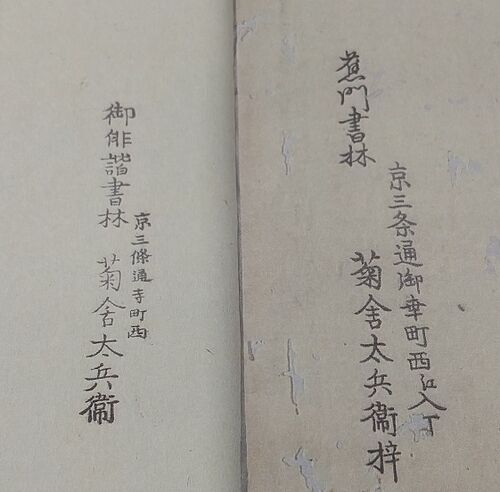 蕉門書林
京三条通御幸町西江入丁
菊舎太兵衞梓
御俳諧書林
京三條通寺町西
菊舎太兵衞